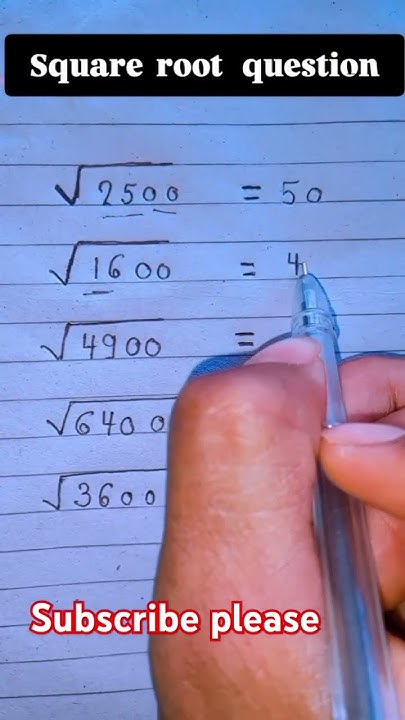 Square root question
√2500 = 50
√1600 = 4
√4900 =
√6400
√3600
Subscribe please